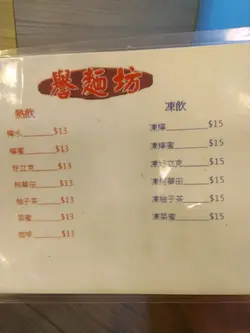 譽麵坊
熱飲
檸水 $13
檸蜜 $13
好立克 $13
阿華田 $13
柚子茶 $13
菜蜜 $13
咖啡 $13
凍飲
凍檸 $15
凍檸蜜 $15
凍好立克 $15
凍阿華田 $15
凍柚子茶 $15
凍菜蜜 $15